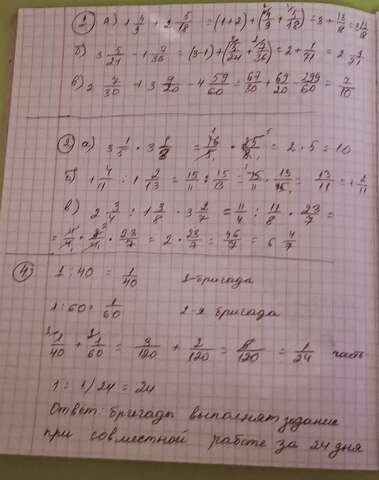 ① а) 1 4/9 + 2 5/18 = (1+2) + (4/9 + 5/18) = 3 + 13/18 = 3 13/18
б) 3 5/24 - 1 7/36 = (3-1) + (5/24 + 7/36) = 2 + 1/71 = 2 1/71
в) 2 7/30 + 3 9/20 - 4 59/60 = 67/30 + 69/20 - 299/60 = 7/10
② а) 3 1/5 · 3 1/8 = 16/5 · 25/8 = 2 · 5 = 10
б) 1 4/11 : 1 2/13 = 15/11 : 15/13 = 15/11 · 13/15 = 13/11 = 1 2/11
в) 2 3/4 : 1 3/8 · 3 2/7 = 11/4 : 11/8 · 23/7 =
= 11/4 · 8/11 · 23/7 = 2 · 23/7 = 46/7 = 6 4/7
④ 1 : 40 = 1/40 1-бригада
1 : 60 = 1/60 2-я бригада
1/40 + 1/60 = 3/120 + 2/120 = 5/120 = 1/24 часть
1 : 1/24 = 24
Ответ: бригады выполнят задание
при совместной работе за 24 дня